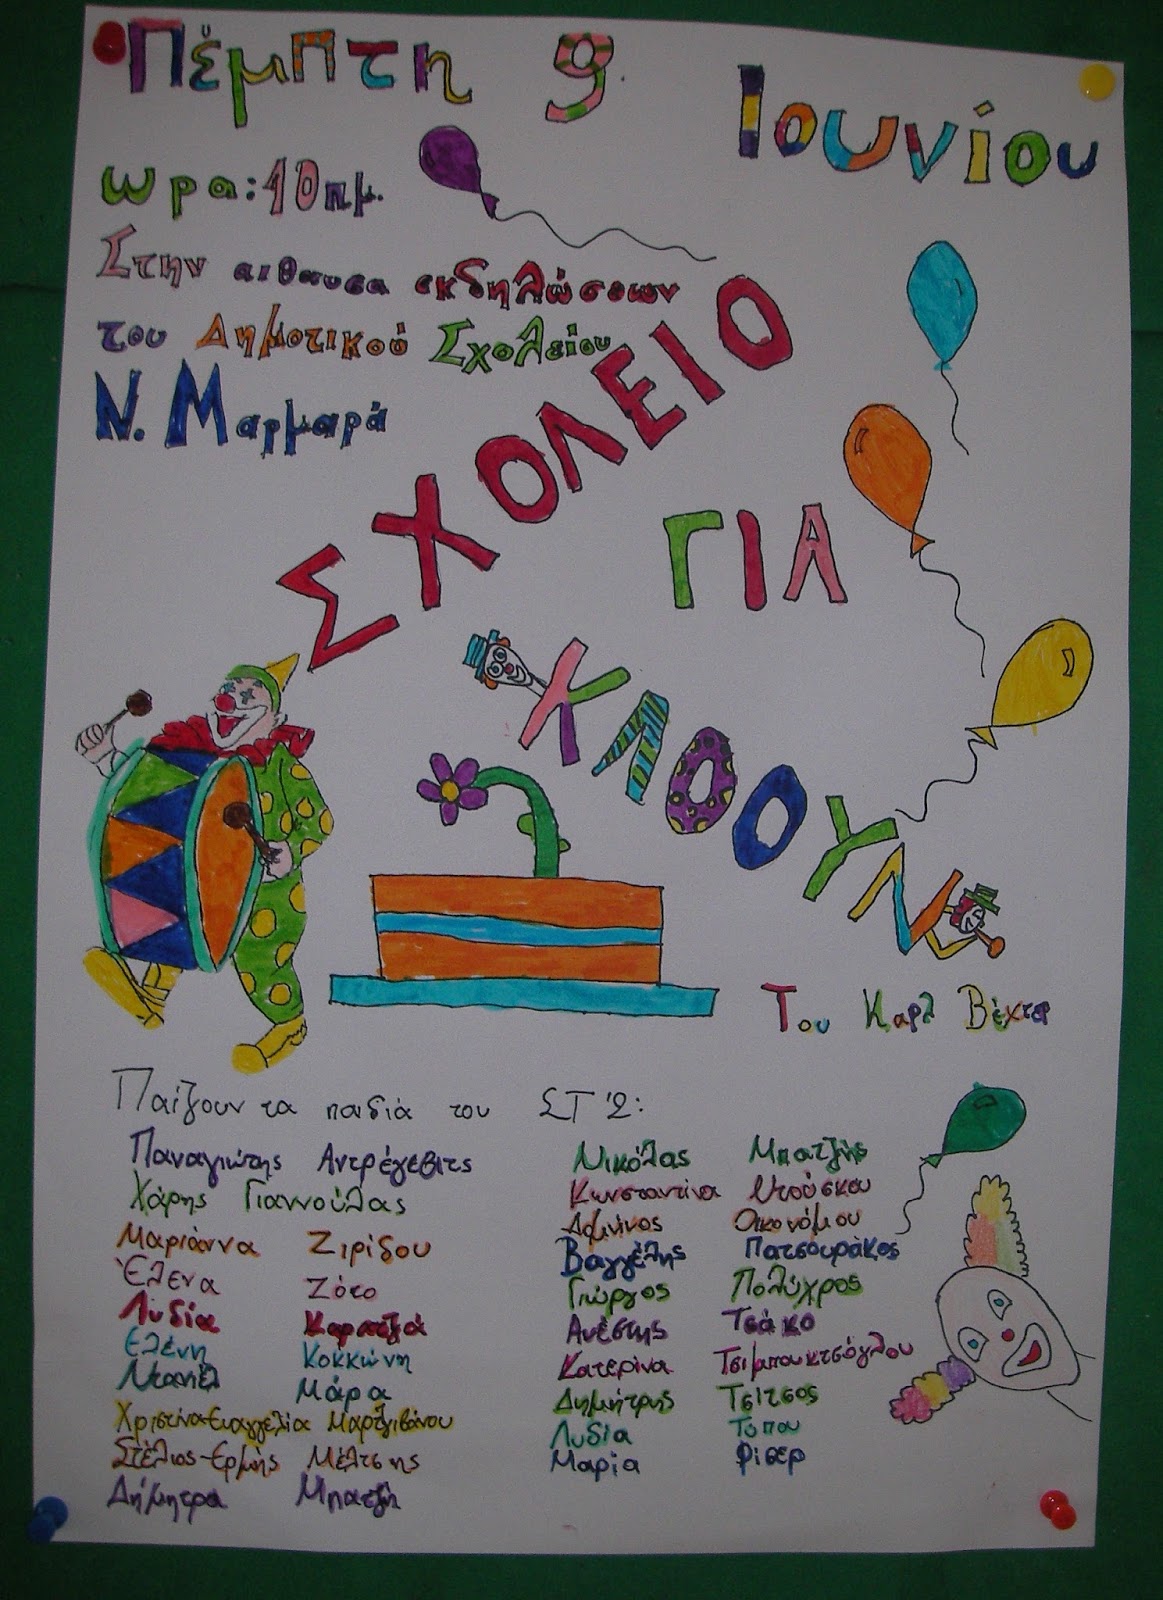 Πέμπτη 9 Ιουνίου
ωρα: 10 πμ.
Στην αιθουσα εκδηλώσεων
του Δημοτικού Σχολείου
Ν. Μαρμαρά
ΣΧΟΛΕΙΟ
ΓΙΑ
ΚΛΟΟΥΝ
Του Καρλ Βέχτερ
Παίζουν τα παιδιά του ΣΤ'2:
Παναγιώτης Αντρέγεβιτς
Χάρης Γιαννούλας
Μαριάννα Ζιρίδου
Έλενα Ζότο
Λυδία Καρατζά
Ελένη Κοκκώνη
Ντανιέλ Μάρα
Χριστίνα-Ευαγγελία Μαρτζιβάνου
Στέλιος-Ερμής Μέλτσης
Δήμητρα Μπατζή
Νικόλας Μπατζής
Κωνσταντίνα Ντούσκου
Οικονόμου
Βαγγέλης Πατσουράκος
Γιώργος Πολύχρος
Ανέστης Τσάκο
Κατερίνα Τσιμπουκτσόγλου
Δημήτρης Τσίτσος
Λυδία Τοπου
Μαρία Φίσερ